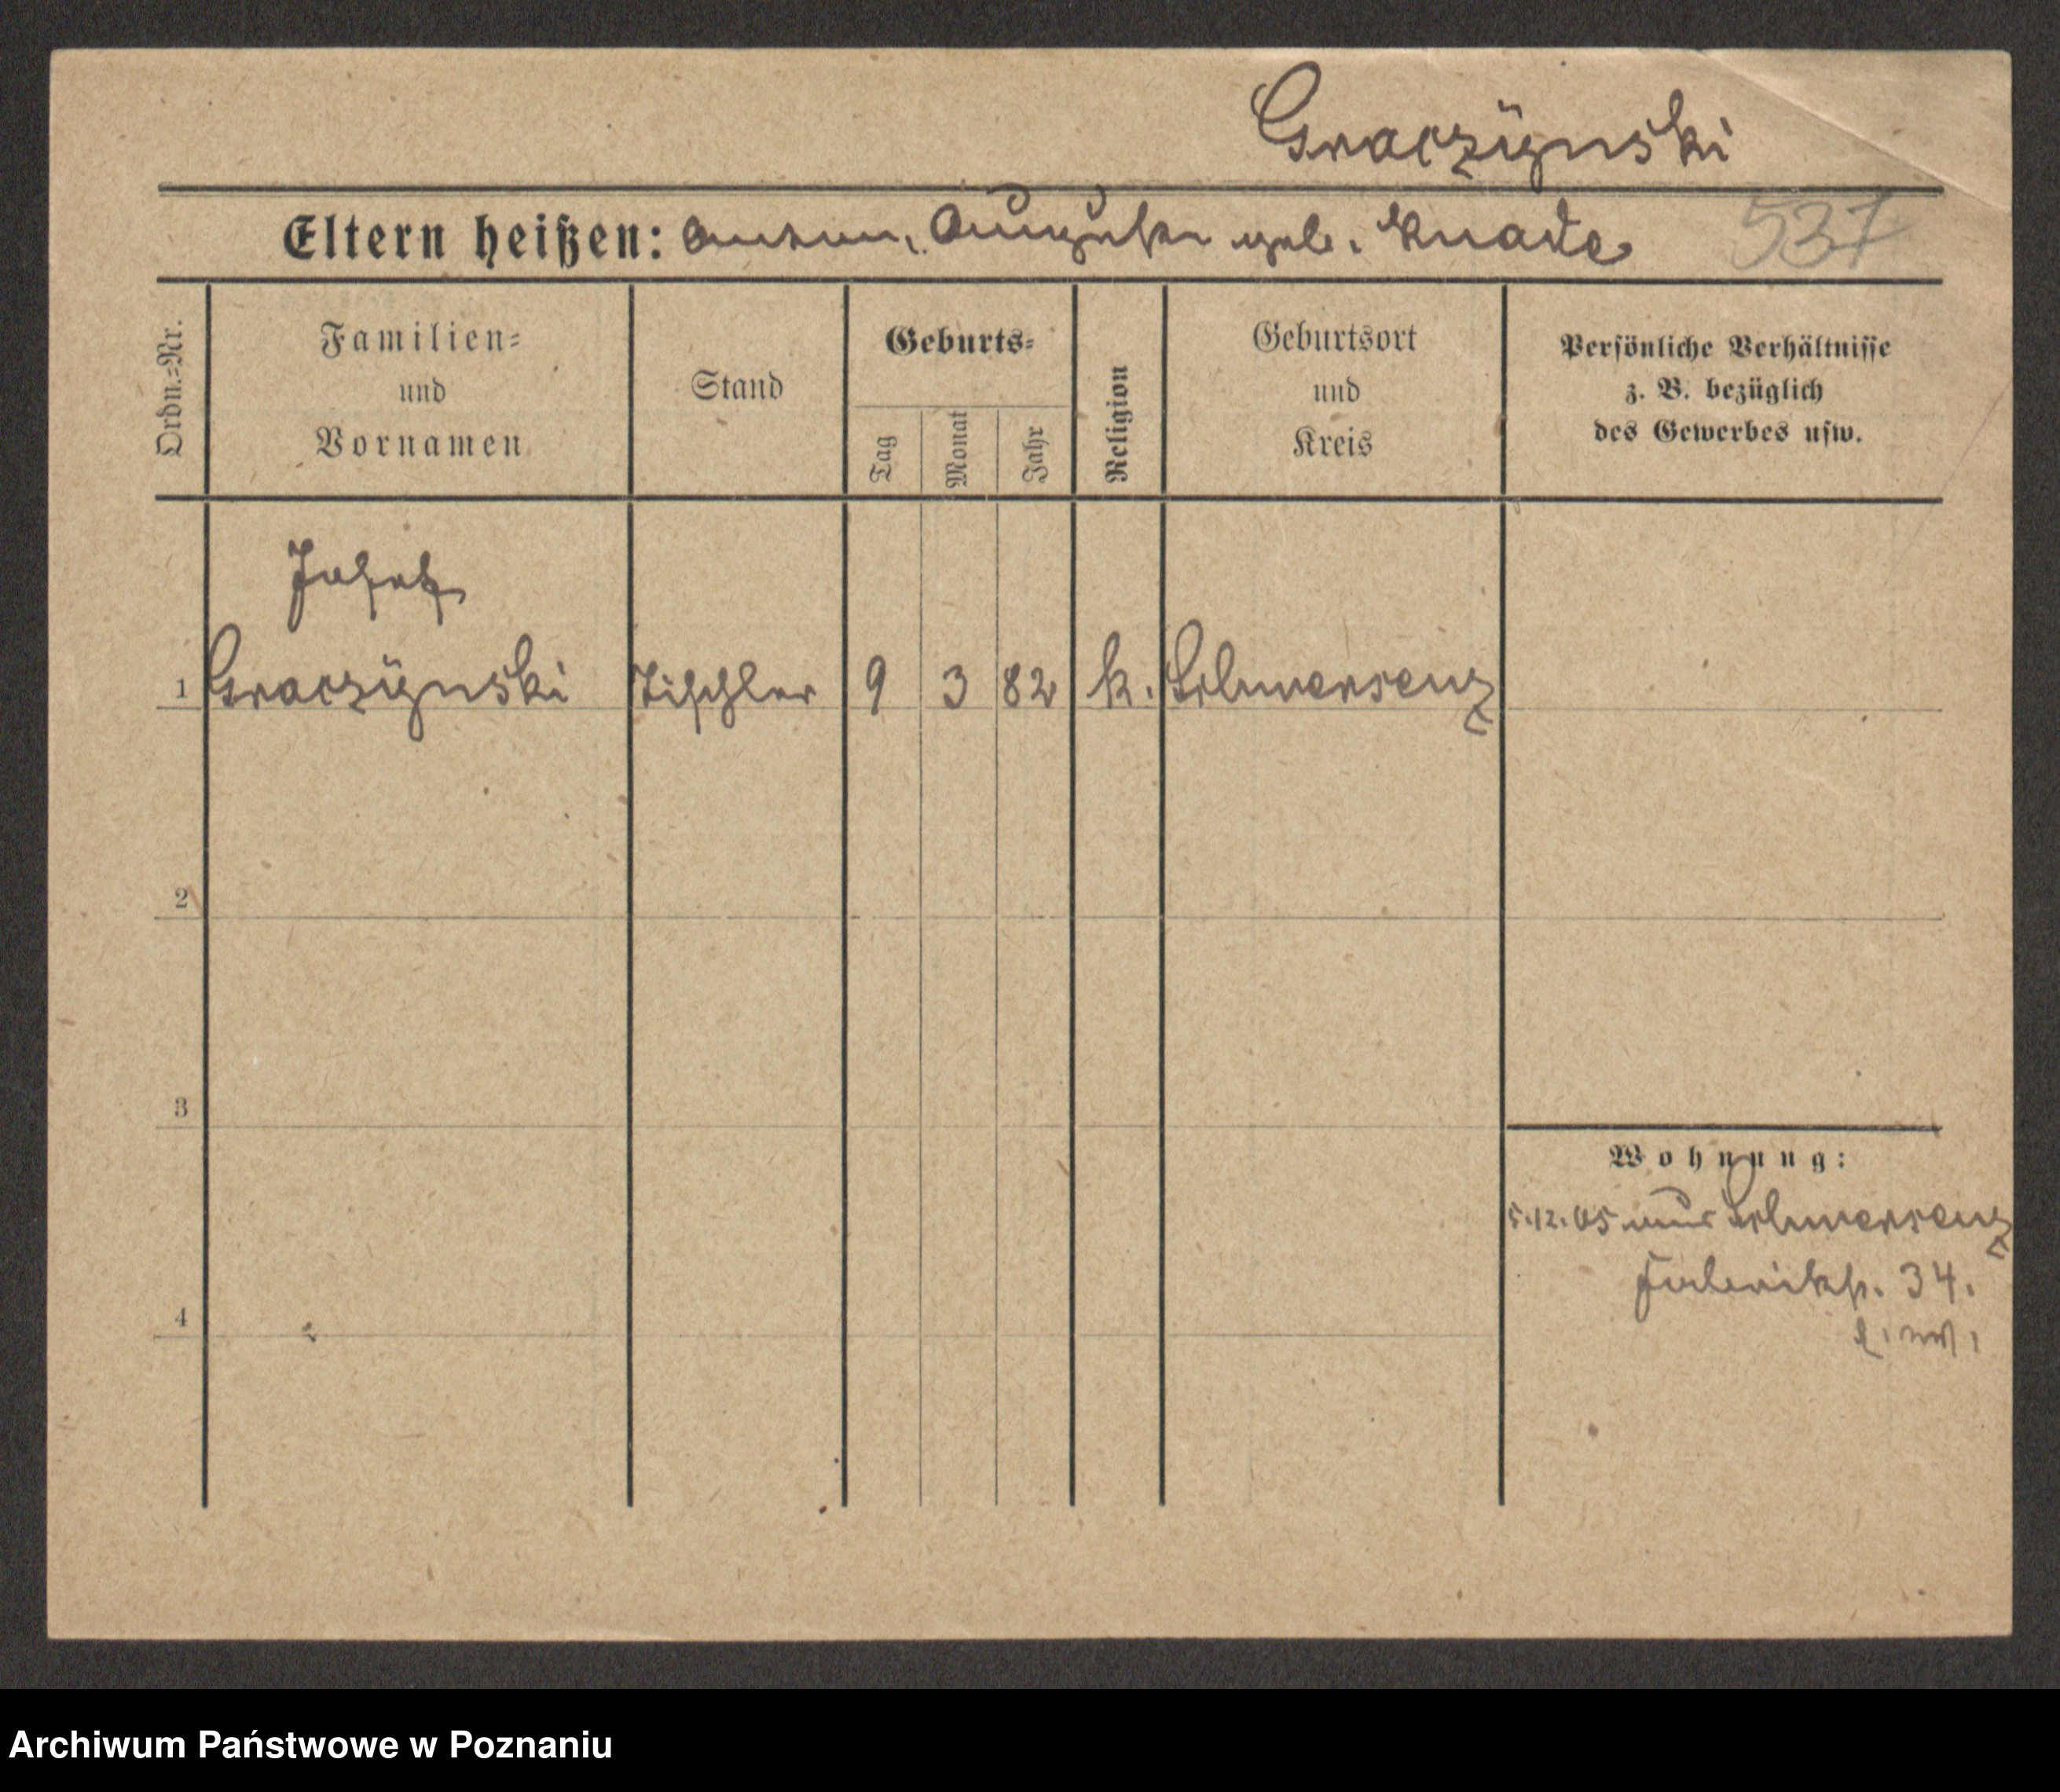 Graczÿnski
Eltern heißen: Anton, Auguste geb. Knade
537
Ordn.=Nr.
Familien=
und
Vornamen
Stand
Geburts=
Tag
Monat
Jahr
Religion
Geburtsort
und
Kreis
Persönliche Verhältnisse
z. B. bezüglich
des Gewerbes usw.
Josef
1 Graczÿnski Tischler 9 3 82 k. Schwersenz
2
3
Wohnung:
5.12.05 aus Schwersenz
Fabrikst. 34.
4
Archiwum Państwowe w Poznaniu